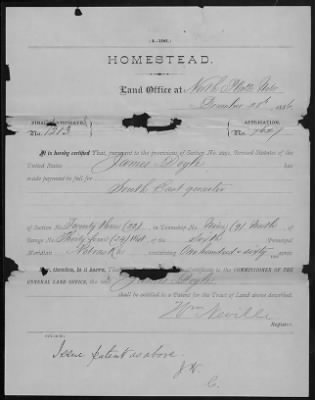 HOMESTEAD.
Land Office at North Platte Neb
FINAL CERTIFICATE, APPLICATION,
No. 1313 No.
It is hereby certified That, pursuant to the provisions of Section No. 2291, Revised Statutes of the
United States James Doyle has
made payment in full for
South East quarter
of Section No. Twenty three (23), in Township No. Nine (9) North
Range No. Thirty four (34) West of the Sixth Principal
Meridian Nebraska containing One hundred & sixty acres
Now, therefore, be it known, That on presentation of this Certificate to the COMMISSIONER OF THE
GENERAL LAND OFFICE, the said James Doyle
shall be entitled to a Patent for the Tract of Land above described.
Wm Neville
Register.
Issue patent as above.